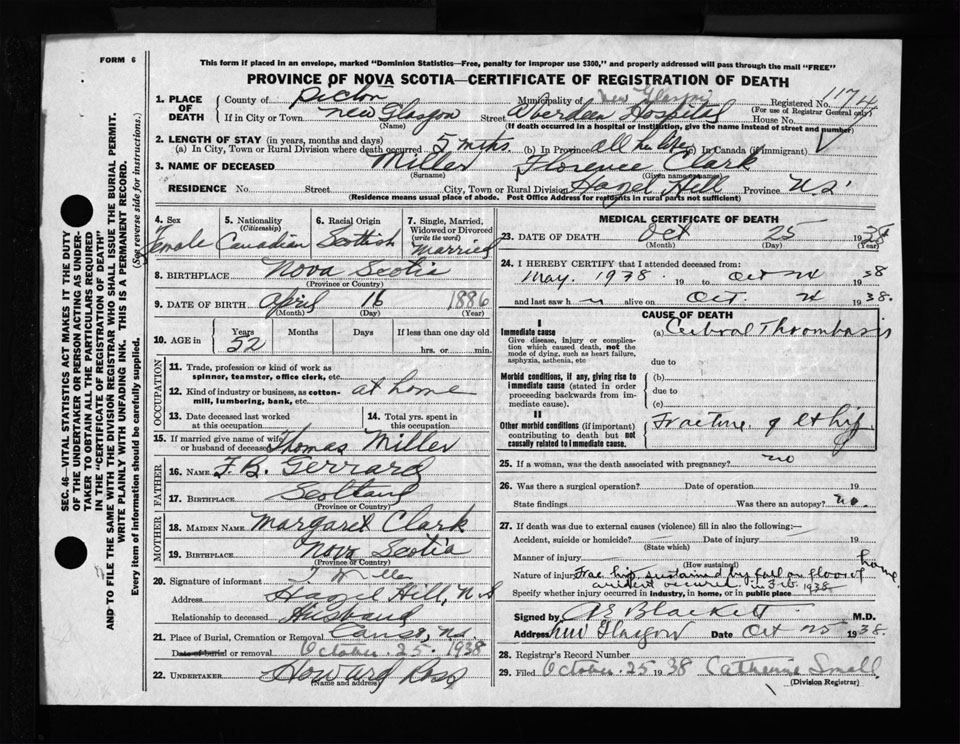 FORM 6
This form if placed in an envelope, marked "Dominion Statistics—Free, penalty for improper use $300," and properly addressed will pass through the mail "FREE"
PROVINCE OF NOVA SCOTIA—CERTIFICATE OF REGISTRATION OF DEATH
1. PLACE OF DEATH
County of Pictou Municipality of New Glasgow Registered No. 1174
(For use of Registrar General only)
If in City or Town New Glasgow Street Aberdeen Hospital House No.
(Name) (If death occurred in a hospital or institution, give the name instead of street and number)
2. LENGTH OF STAY (in years, months and days)
(a) In City, Town or Rural Division where death occurred 5 mths. (b) In Province all her life (c) In Canada (if immigrant)
3. NAME OF DECEASED Miller Florence Clark
(Surname) (Given name or names)
RESIDENCE No. Street City, Town or Rural Division Hazel Hill Province N.S.
(Residence means usual place of abode. Post Office Address for residents in rural parts not sufficient)
4. Sex
Female
5. Nationality
(Citizenship)
Canadian
6. Racial Origin
Scottish
7. Single, Married,
Widowed or Divorced
(write the word)
Married
8. BIRTHPLACE Nova Scotia
(Province or Country)
9. DATE OF BIRTH April 16 1886
(Month) (Day) (Year)
10. AGE in
Years Months Days If less than one day old
52 hrs. or min.
OCCUPATION
11. Trade, profession or kind of work as
spinner, teamster, office clerk, etc.
12. Kind of industry or business, as cotton-
mill, lumbering, bank, etc. at home
13. Date deceased last worked
at this occupation
14. Total yrs. spent in
this occupation
15. If married give name of wife
or husband of deceased Thomas Miller
FATHER
16. NAME F. B. Gerrard
17. BIRTHPLACE Scotland
MOTHER
18. MAIDEN NAME Margaret Clark
19. BIRTHPLACE Nova Scotia
(Province or Country)
20. Signature of informant T Miller
Address Hazel Hill, N S
Relationship to deceased Husband
21. Place of Burial, Cremation or Removal Canso, N.S.
Date of burial or removal October 25 1938
22. UNDERTAKER Howard Ross
(Name and address)
MEDICAL CERTIFICATE OF DEATH
23. DATE OF DEATH Oct 25 1938
(Month) (Day) (Year)
24. I HEREBY CERTIFY that I attended deceased from:
May. 1938. 19 to Oct 24 38
and last saw h alive on Oct. 24 1938.
CAUSE OF DEATH
I
Immediate cause (a) Cerebral Thrombosis
Give disease, injury or complica-
tion which caused death, not the
mode of dying, such as heart failure,
asphyxia, asthenia, etc
due to
Morbid conditions, if any, giving rise to
immediate cause (stated in order
proceeding backwards from im-
mediate cause).
(b)
due to
(c)
II
Other morbid conditions (if important)
contributing to death but not
causally related to immediate cause.
Fracture of lt hip
25. If a woman, was the death associated with pregnancy? no
26. Was there a surgical operation? Date of operation 19
State findings Was there an autopsy? no.
27. If death was due to external causes (violence) fill in also the following:—
Accident, suicide or homicide? Date of injury 19
(State which)
Manner of injury
(How sustained)
Nature of injury Frac hip, sustained by fall on floor of home
accident occurred in Feb. 1938
Specify whether injury occurred in industry, in home, or in public place
Signed by A E Blackett M.D.
Address New Glasgow Date Oct 25 1938
28. Registrar's Record Number
29. Filed October 25 1938 Catherine Small
(Division Registrar)
SEC. 46—VITAL STATISTICS ACT MAKES IT THE DUTY
OF THE UNDERTAKER OR PERSON ACTING AS UNDER-
TAKER TO OBTAIN ALL THE PARTICULARS REQUIRED
IN THE "CERTIFICATE OF REGISTRATION OF DEATH"
AND TO FILE THE SAME WITH THE DIVISION REGISTRAR WHO SHALL ISSUE THE BURIAL PERMIT.
WRITE PLAINLY WITH UNFADING INK. THIS IS A PERMANENT RECORD.
Every item of information should be carefully supplied. (See reverse side for instructions.)